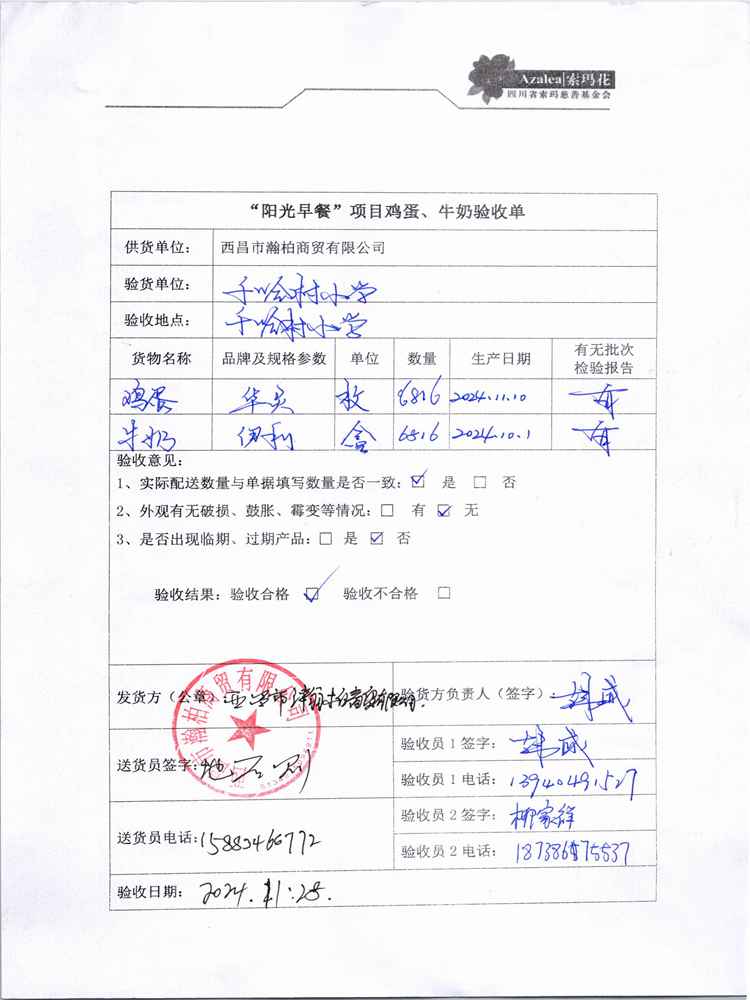 Azalea|索玛花
四川省索玛慈善基金会
“阳光早餐”项目鸡蛋、牛奶验收单
供货单位： 西昌市瀚柏商贸有限公司
验货单位： 千哈村小学
验收地点： 千哈村小学
货物名称 品牌及规格参数 单位 数量 生产日期 有无批次检验报告
鸡蛋 华贝 枚 6816 2024.11.10 有
牛奶 伊利 盒 6816 2024.10.1 有
验收意见：
1、实际配送数量与单据填写数量是否一致：☑ 是 □ 否
2、外观有无破损、鼓胀、霉变等情况：□ 有 ☑ 无
3、是否出现临期、过期产品：□ 是 ☑ 否
验收结果：验收合格 ☑ 验收不合格 □
发货方（公章）：西昌市瀚柏商贸有限公司.
验货方负责人（签字）
送货员签字：
验收员 1 签字：
验收员 1 电话：13940491527
送货员电话：15883466772
验收员 2 签字：柳家祥
验收员 2 电话：187386575537
验收日期： 2024.11.28.